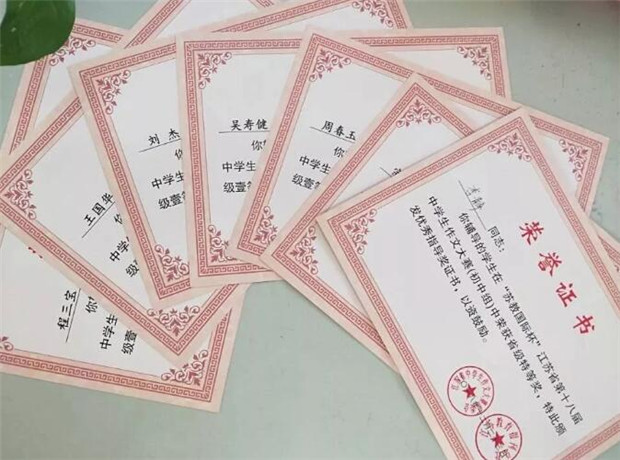 刘杰
你
中学生
级壹
吴寿健
你
中学生
级壹
周春玉
你
中学生
级壹
王国华
你
中学生
级壹
程三宝
你
中学生
级壹
荣誉证书
同志：
你辅导的学生在“苏教国际杯”江苏省第十八届
中学生作文大赛(初中组)中荣获省级特等奖，特此颁
发优秀指导奖证书，以资鼓励。